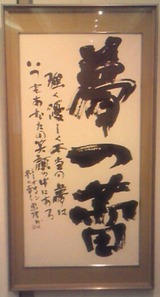 夢の蕾
強く優しく本当の夢は
いつもあなたの笑顔の中にある